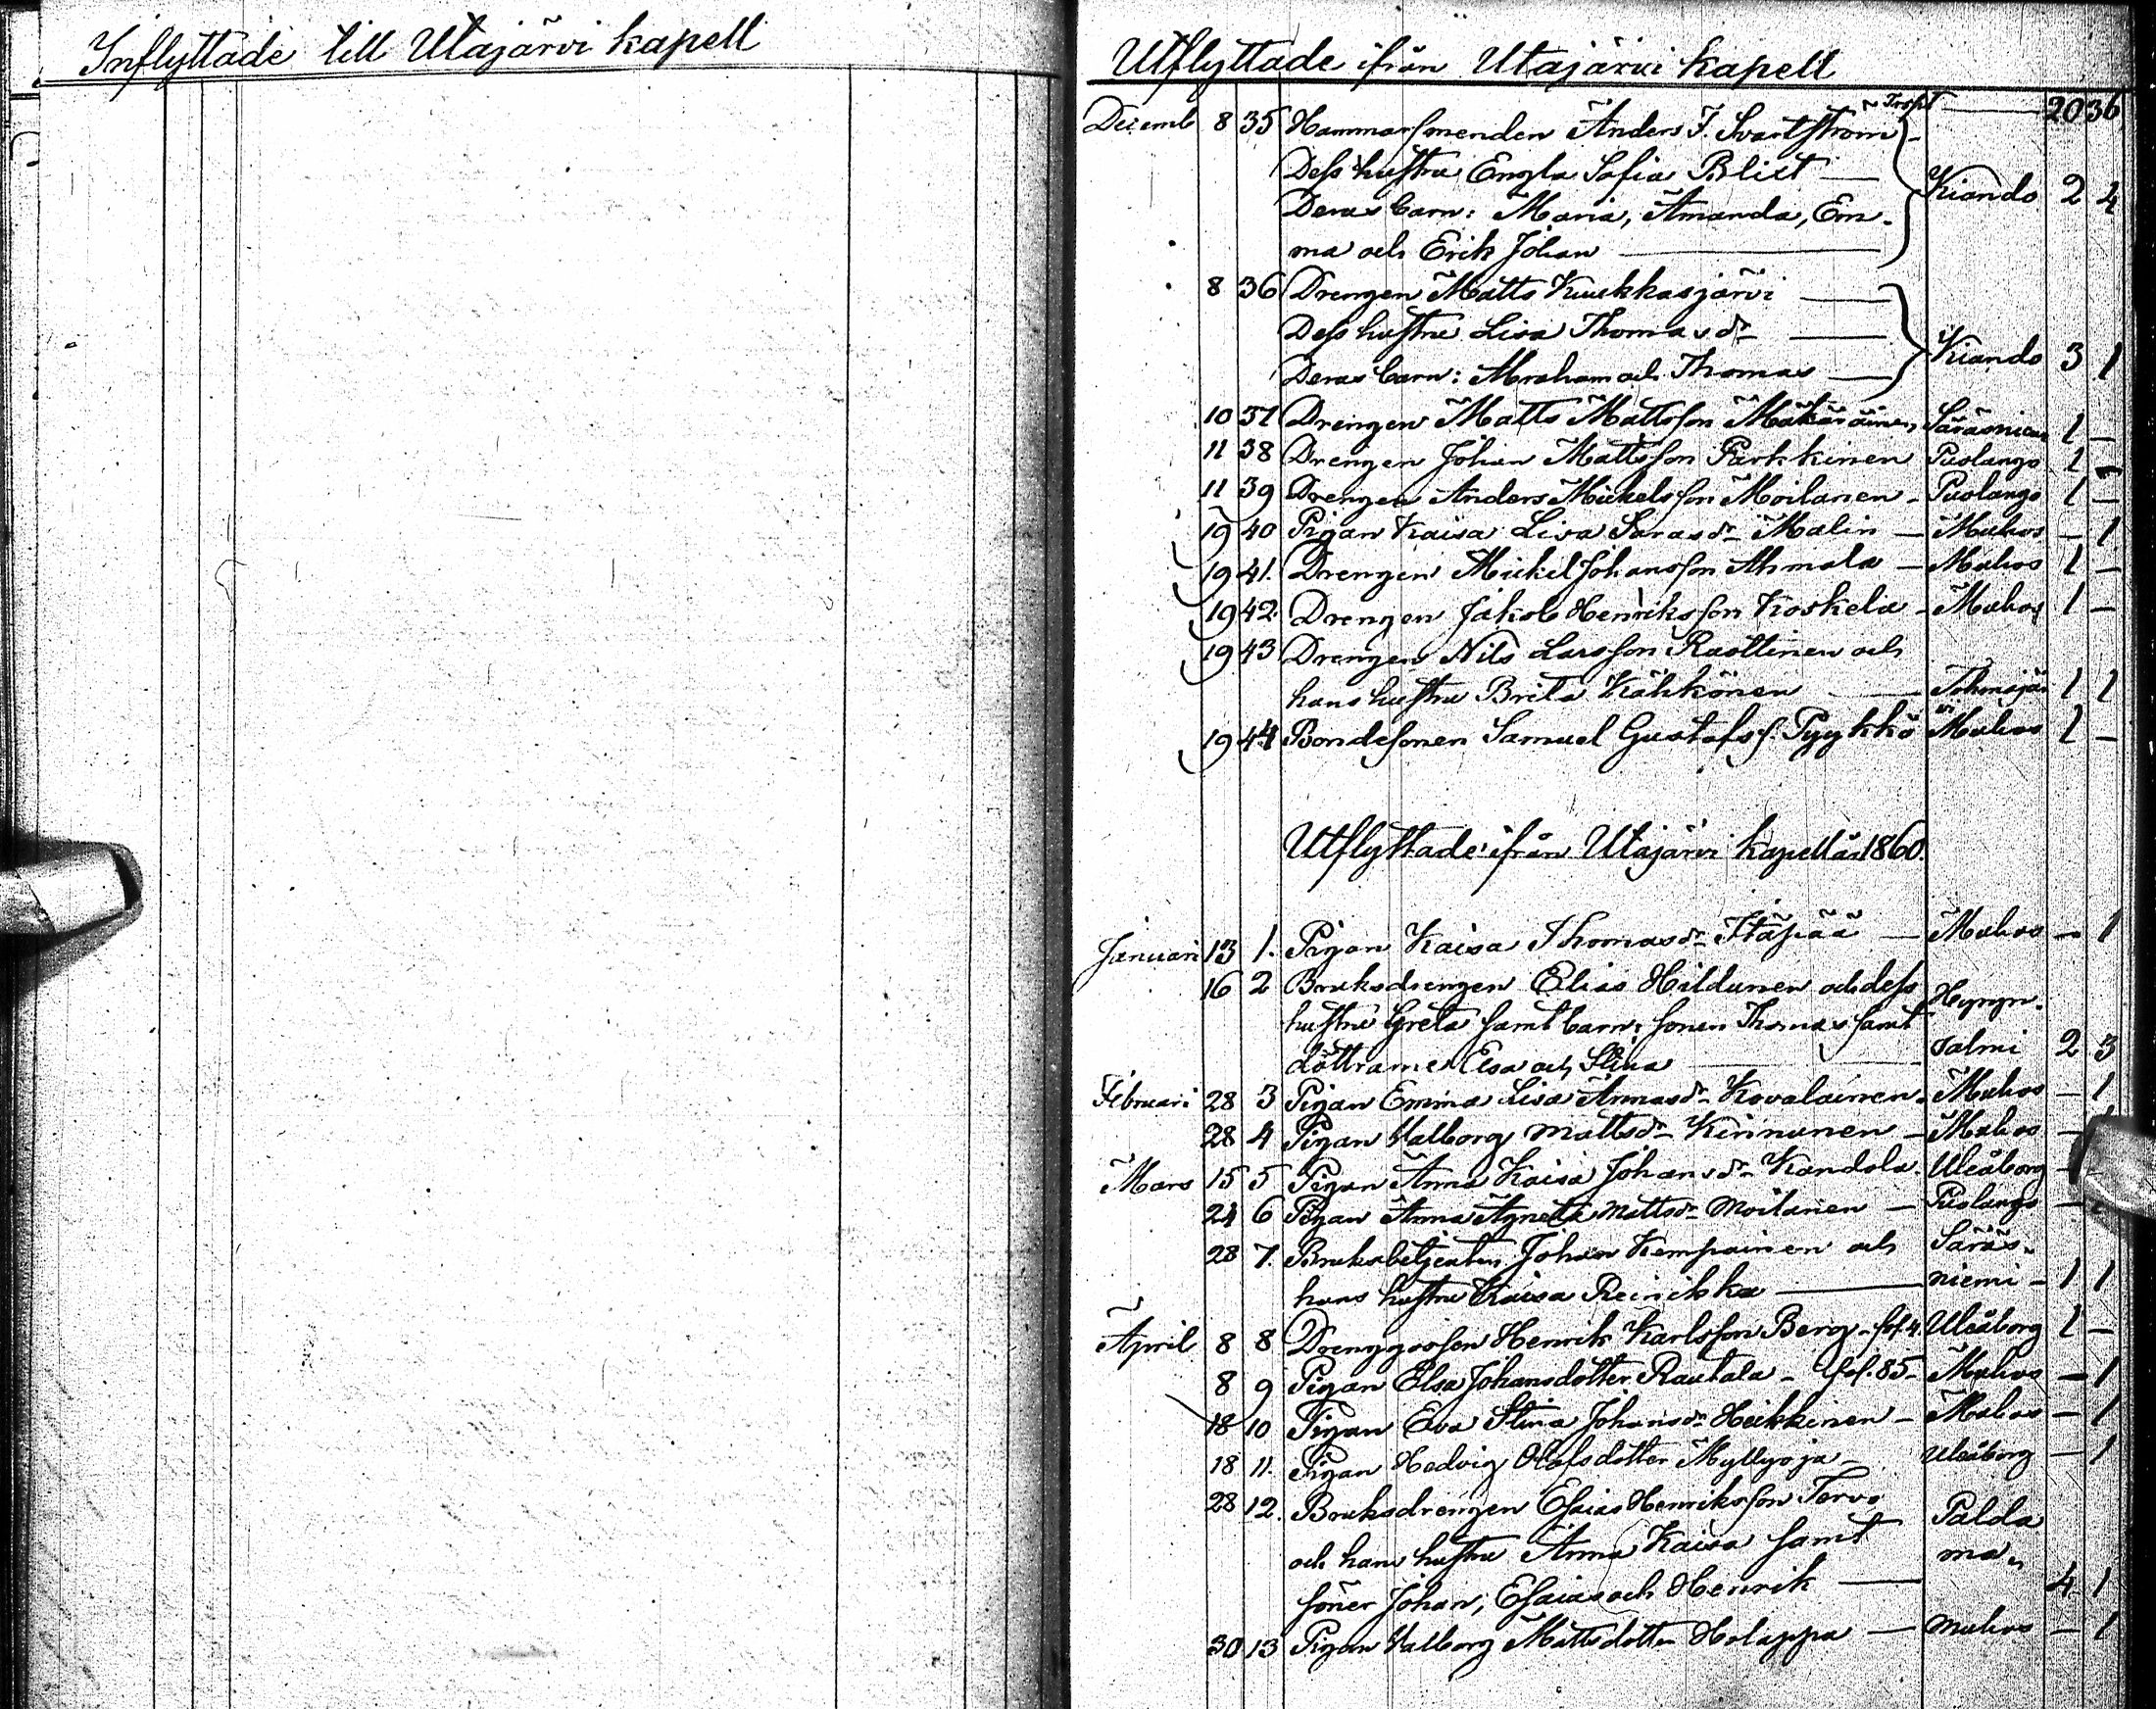 Inflyttade till Utajärvi kapell
Utflyttade ifrån Utajärvi kapell
Trspt 20 36
Decemb 8 35 Hammarsmenden Anders J. Svartström
Dess hustru Engla Sofia Blict
Deras barn: Maria, Amanda, Em- Kiando 2 4
ma och Erik Johan
8 36 Drengen Matts Kuukkasjärvi
Dess hustru Lisa Thomasdr
Deras barn: Abraham och Thomas Kiando 3 1
10 37 Drengen Matts Mattsson Mäkäräinen Säräsniemi 1 –
11 38 Drengen Johan Mattsson Parkkinen Puolango 1 –
11 39 Drengen Anders Mickelsson Moilanen – Puolango 1 –
19 40 Pigan Kaisa Lisa Sarasdr Malin – Muhos – 1
19 41. Drengen Mickel Johansson Ahmala – Muhos 1 –
19 42 Drengen Jakob Henriksson Koskela – Muhos 1 –
19 43 Drengen Nils Larsson Ruottinen och
hans hustru Brita Kähkönen Tohmajär 1 1
vi
19 44 Bondesonen Samuel Gustafs s. Pyykkö Muhos 1 –
Utflyttade ifrån Utajärvi kapell år 1860.
Januari 13 1. Pigan Kaisa Thomasdr Itäpää – Muhos – 1
16 2 Bruksdrengen Elias Hildunen och dess
hustru Greta samt barn: sonen Thomas samt Hyryn-
döttrarne Elsa och Stina salmi 2 3
Februari 28 3 Pigan Emma Lisa Annasdr Kovalainen. Muhos – 1
28 4 Pigan Valborg Mattsdr Kinnunen – Muhos –
Mars 15 5 Pigan Anna Kaisa Johansdr Kandola. Uleåborg –
24 6 Pigan Anna Agneta Mattsdr Moilanen – Puolango –
28 7. Bruksbetjenten Johan Kempainen och Säräs-
hans hustru Kaisa Reinikka niemi – 1 1
April 8 8 Drenggossen Henrik Karlsson Berg – fol. 4 Uleåborg 1 –
8 9 Pigan Elsa Johansdotter Rautala – fol. 85 – Muhos – 1
18 10 Pigan Eva Stina Johansdr Heikkinen – Muhos – 1
18 11. Pigan Hedvig Olofsdotter Myllyoja – Uleåborg – 1
28 12. Bruksdrengen Esaias Henriksson Tervo Palda
och hans hustru Anna Kaisa samt mo
söner Johan, Esaias och Henrik 4 1
30 13 Pigan Valborg Mattsdotter Holappa – Muhos – 1